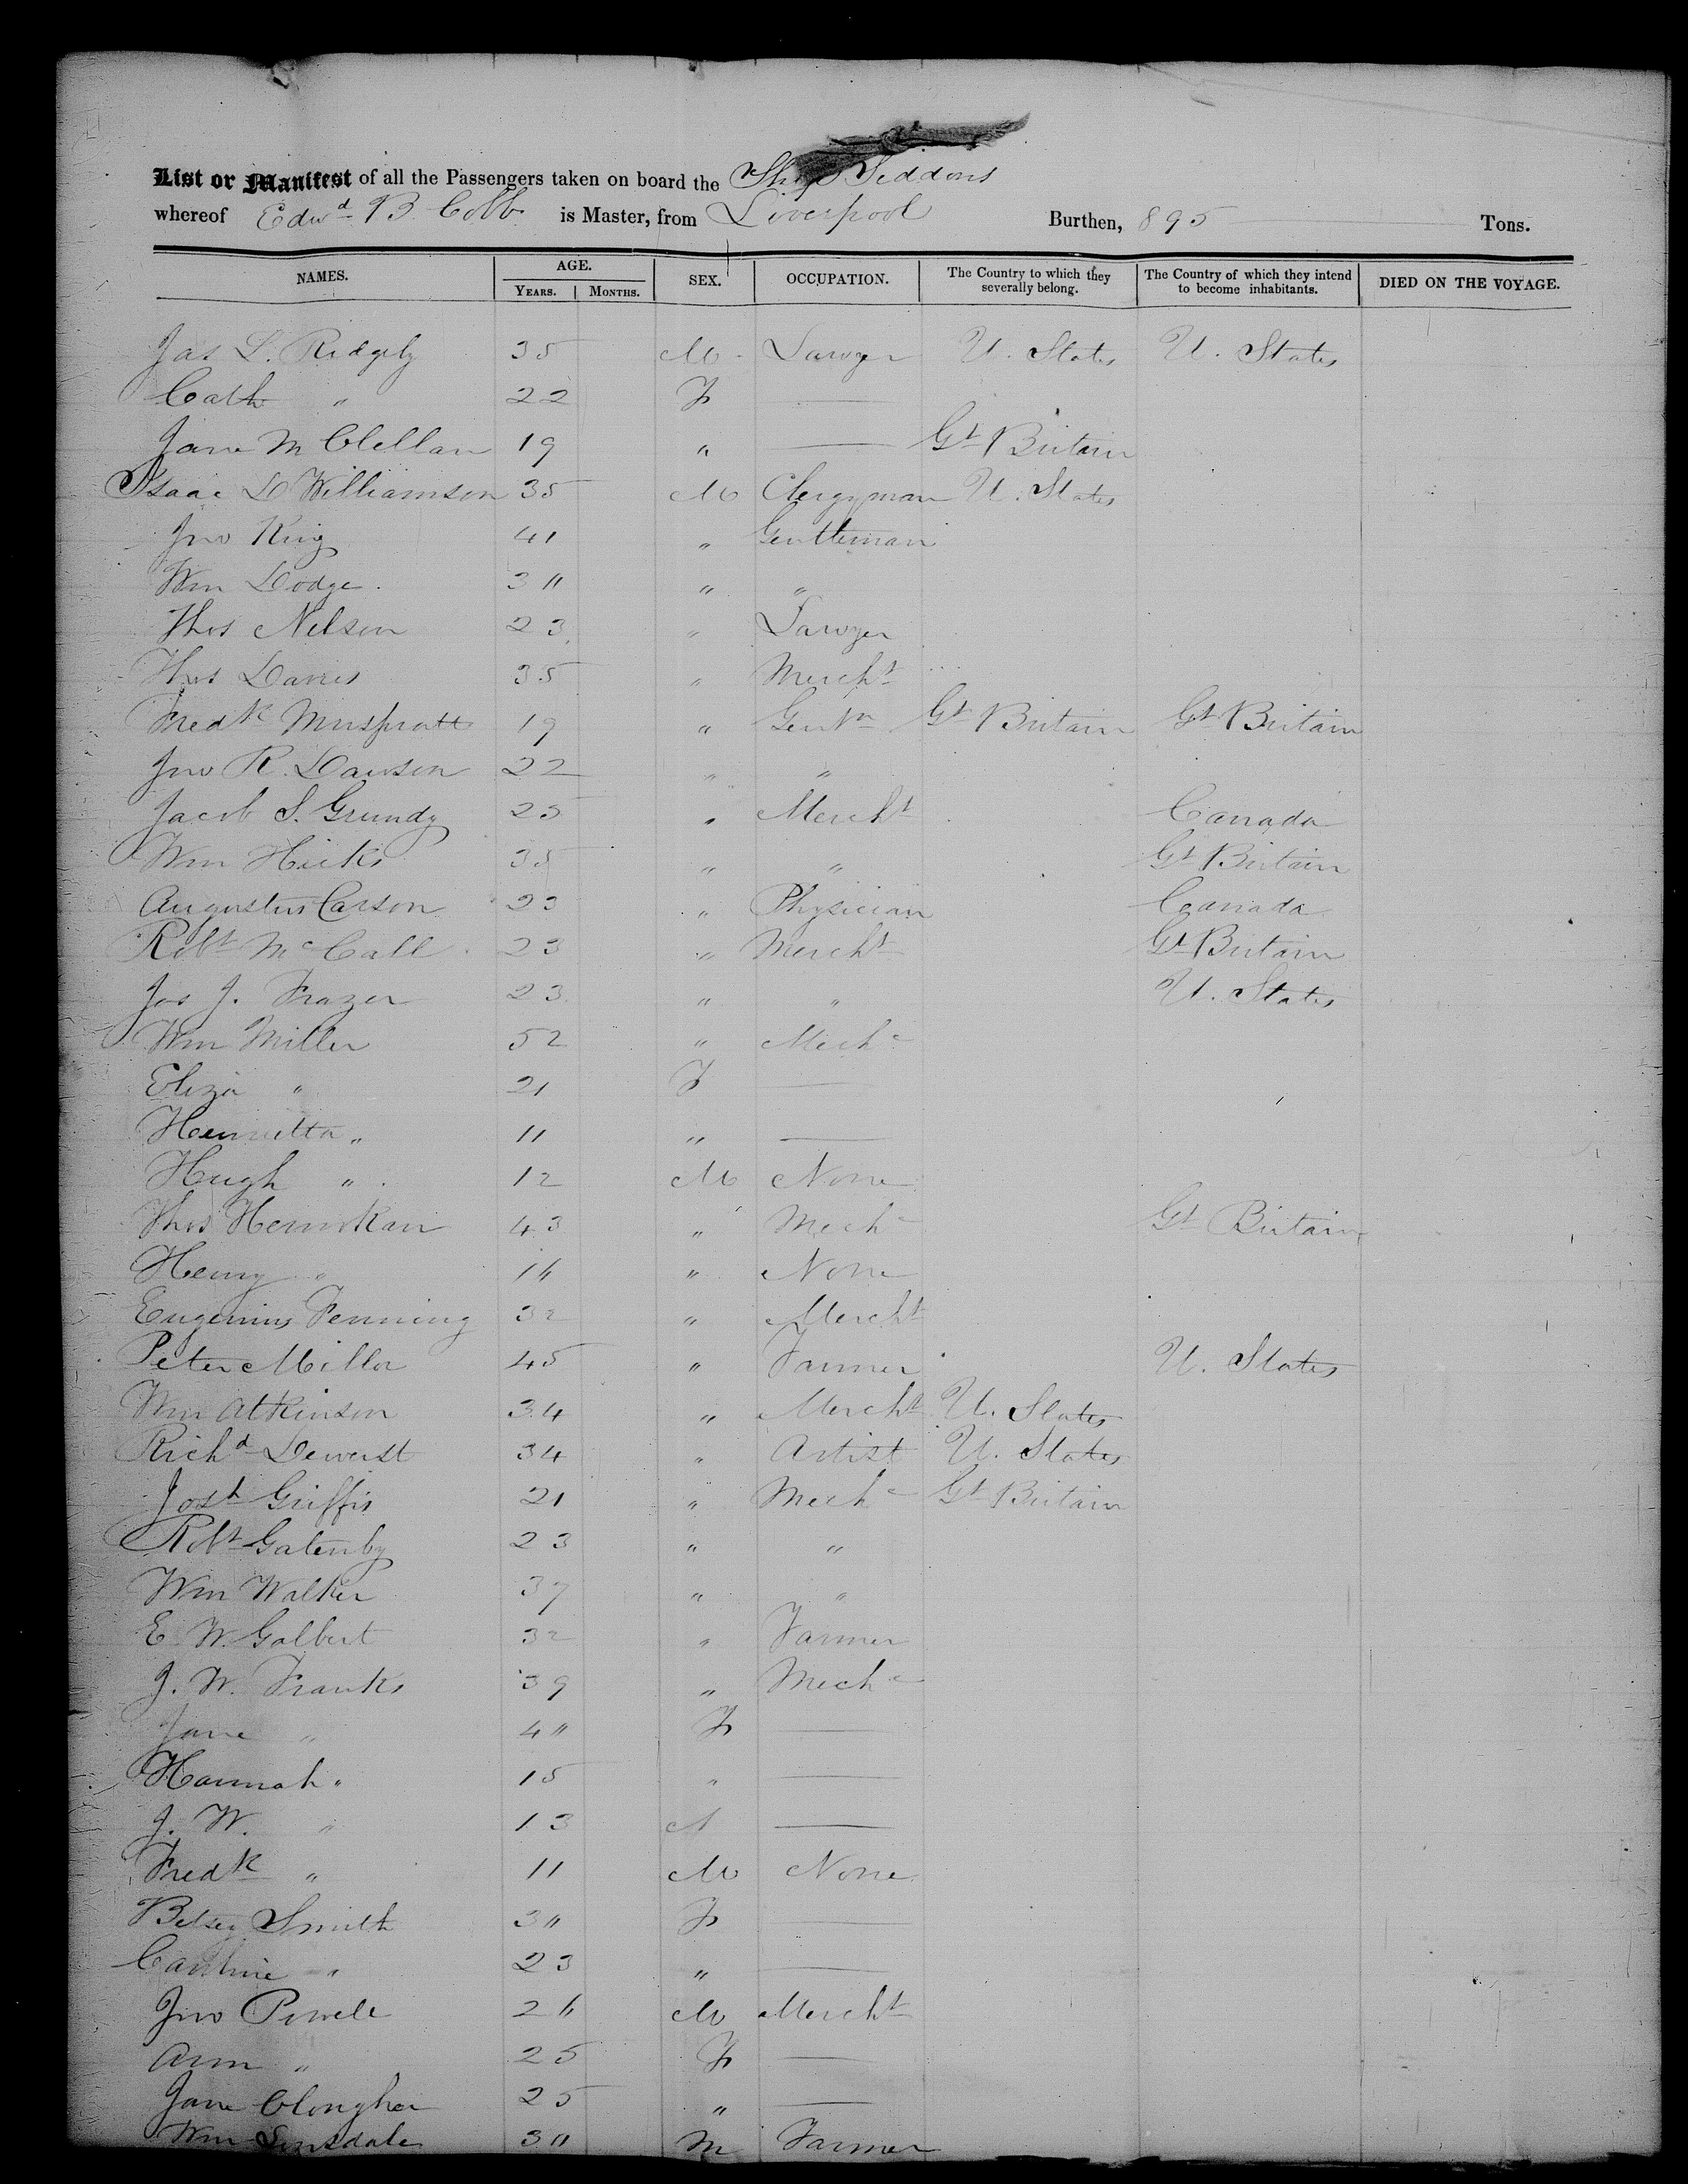 List or Manifest of all the Passengers taken on board the Ship Siddons
whereof Edwd B Cobb is Master, from Liverpool Burthen, 895 Tons.
NAMES. AGE. YEARS. MONTHS. SEX. OCCUPATION. The Country to which they severally belong. The Country of which they intend to become inhabitants. DIED ON THE VOYAGE.
Jas L. Ridgely 35 M Lawyer U. States U. States
Cath " 22 F —
Jane McClellan 19 " — Gt Britain
Isaac D Williamson 35 M Clergyman U. States
Jno King 41 " Gentleman
Wm Dodge 3" " "
Thos Nelson 23 " Lawyer
Thos Davies 35 " Mercht
Fredk Muspratt 19 " Gentn Gt Britain Gt Britain
Jno R. Dawson 22 " "
Jacob S. Grundy 25 " Mercht Canada
Wm Hicks 35 " " Gt Britain
Augustus Carson 23 " Physician Canada
Robt McCall 23 " Mercht Gt Britain
Jas J. Frazer 23 " " U. States
Wm Miller 52 " Mechc
Eliza " 21 F —
Henrietta " 11 " —
Hugh " 12 M None
Thos 43 " Mechc Gt Britain
Henry " 1" " None
Eugenius Fenning 32 " Mercht
Peter Miller 45 " Farmer U. States
Wm Atkinson 34 " Mercht U. States
Richd Dewerst 34 " Artist U. States
Josh Griffis 21 " Mechc Gt Britain
Robt Gatenby 23 " "
Wm Walker 37 " "
E W. Galbert 32 " Farmer
J. W. Franks 39 " Mechc
Jane " 4" F —
Hannah " 15 " —
J. W. " 13 —
Fredk " 11 M None
Betsey Smith 3" F —
Caroline " 23 " —
Jno Powell 2" M Mercht
Ann " 25 F —
Jane Clougher 25 " —
Wm Linsdale 3" M Farmer